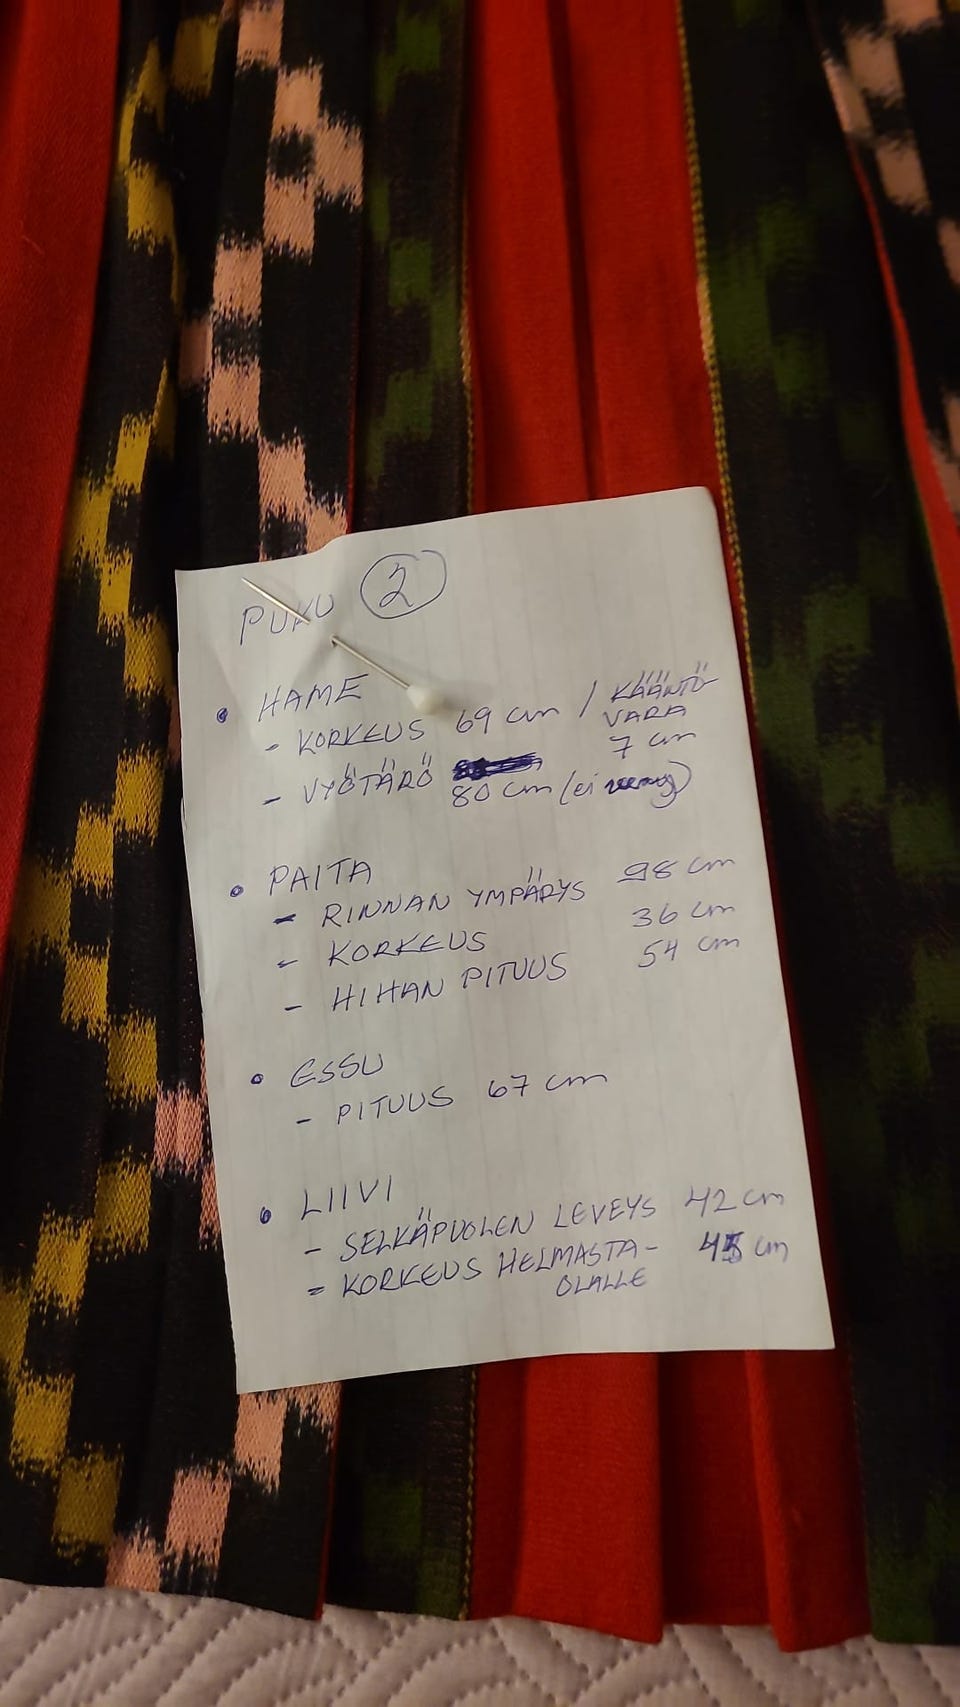 PUKU 2
• HAME
- KORKEUS 69 cm / KÄÄNTÖ-
VARA
7 cm
- VYÖTÄRÖ
80 cm (ei veny)
• PAITA
- RINNAN YMPÄRYS 98 cm
- KORKEUS 36 cm
- HIHAN PITUUS 54 cm
• ESSU
- PITUUS 67 cm
• LIIVI
- SELKÄPUOLEN LEVEYS 42 cm
- KORKEUS HELMASTA- 45 cm
OLALLE